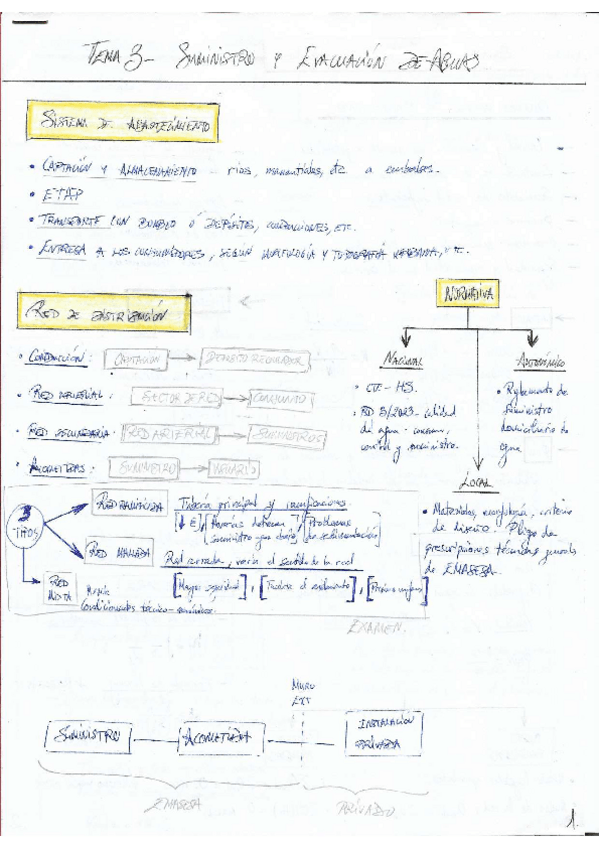 TEMA 3- SUMINISTRO Y EVACUACIÓN DE AGUAS
SISTEMA DE ABASTECIMIENTO
• CAPTACIÓN Y ALMACENAMIENTO - ríos, manantiales, etc a embalses.
• ETAP
• TRANSPORTE CON BOMBEO Ó DEPÓSITOS, CONDUCCIONES, ETC.
• ENTREGA A LOS CONSUMIDORES, SEGÚN MORFOLOGÍA Y TOPOGRAFÍA URBANA, ETC.
RED DE DISTRIBUCIÓN
NORMATIVA
• CONDUCCIÓN: CAPTACIÓN → DEPÓSITO REGULADOR
• RED ARTERIAL: SECTOR DE RED → CONJUNTO
• RED SECUNDARIA: RED ARTERIAL → SUMINISTROS
• ACOMETIDAS: SUMINISTRO → USUARIO
NACIONAL
• CTE - HS.
• RD 3/2023 - calidad
de agua - consumo,
control y suministro.
AUTONÓMICO
• Reglamento de
suministro
domiciliario de
agua
LOCAL
• Materiales, morfología, criterios
de diseño. Pliego de
prescripciones técnicas
de EMASESA.
3
TIPOS
RED RAMIFICADA
Tubería principal y ramificaciones
[↓ €], [Averías detienen suministro aguas abajo], [Problemas de sedimentación]
RED MALLADA
Red cerrada, varía el sentido de la red
[Mayor seguridad], [Facilita el], [
RED
MIXTA
Condicionantes técnico-económicos.
EXAMEN.
MURO
EXT
SUMINISTRO
ACOMETIDA
INSTALACIÓN
PRIVADA
EMASESA
PRIVADO
1.